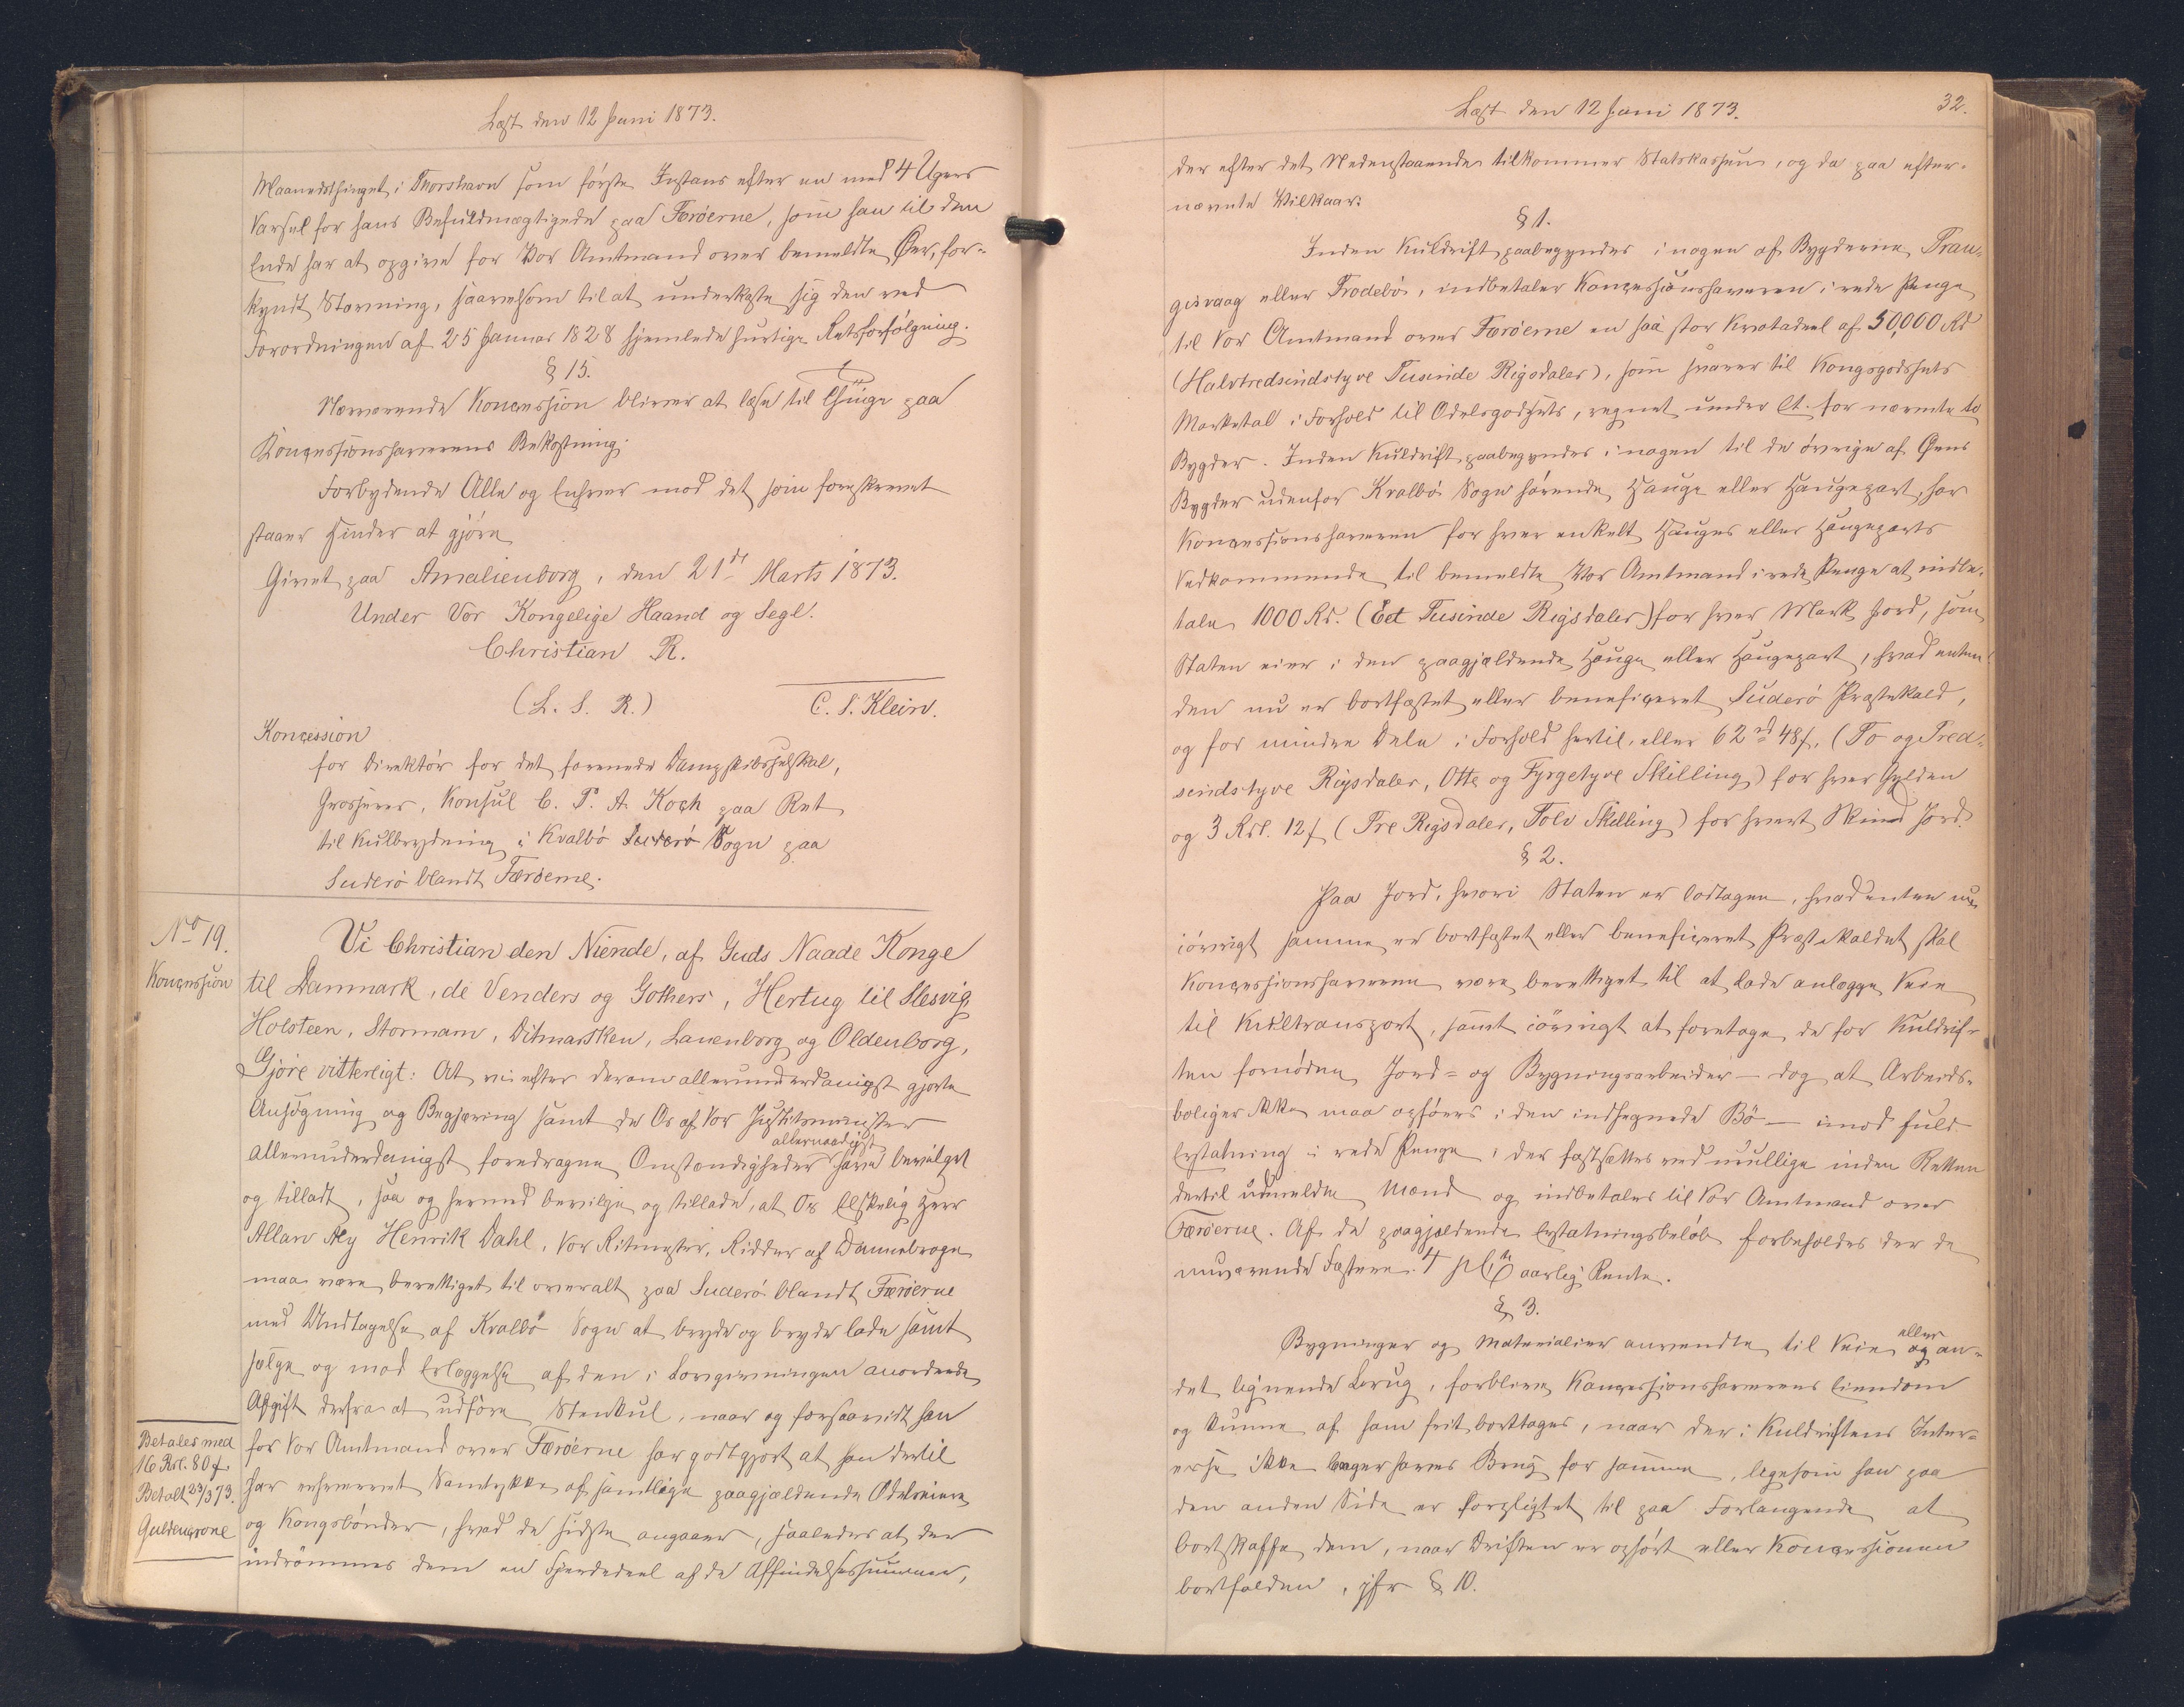 Læst den 12 Juni 1873.
Maanedsthinget i Thorshavn som første Instans efter en med 4 Ugers
Varsel for hans Befuldmægtigede paa Færøerne, som han til den
Ende har at opgive for Vor Amtmand over bemeldte Øer, for-
kyndt Stævning, saavelsom til at underkaste sig den ved
Forordningen af 25 Januar 1828 hjemlede hurtige Retsforfølgning.
§ 15.
Nærværende Koncession bliver at læse til Thinge paa
Koncessionshaverens Bekostning.
Forbydende Alle og Enhver mod det som foreskrevet
staaer Hinder at gjøre
Givet paa Amalienborg, den 21de Marts 1873.
Under Vor Kongelige Haand og Segl.
Christian R.
(L. S. R.) C. S. Klein.
Koncession
for Direktør for det forenede Dampskibsselskal,
Grosserer, Konsul C. P. A. Koch paa Ret
til Kulbrydning i Kvalbø Suderø Sogn paa
Suderø blandt Færøerne.
No 19.
Koncession
Vi Christian den Niende, af Guds Naade Konge
til Danmark, de Venders og Gothers, Hertug til Slesvig,
Holsteen, Stormarn, Ditmarsken, Lauenborg og Oldenborg,
Gjøre vitterligt: At vi efter derom allerunderdanigst gjorte
Ansøgning og Begjæring samt de Os af Vor Justitsminister
allernaadigst
allerunderdanigst foredragne Omstændigheder have bevilget
og tilladt, saa og hermed bevilge og tillade, at Os elskelig Herr
Allan Aly Henrik Dahl, Vor Ritmester, Ridder af Dannebroge
maa være berettiget til overalt paa Suderø blandt Færøerne
med Undtagelse af Kvalbø Sogn at bryde og bryde lade samt
sælge og mod Erlæggelse af den i Lovgivningen anordnede
Afgift derfra at udføre Steenkul, naar og forsaavidt han
Betales med
16 Rdl. 80 s.
Betalt 23/3 73.
Guldencrone
for Vor Amtmand over Færøerne har godtgjort at han dertil
har erhvervet Samtykke af samtlige paagjældende Odelseiere
og Kongsbønder, hvad de sidste angaaer, saaledes at der
indrømmes dem en Fjerdedeel af de Affindelsessummer,
Læst den 12 Juni 1873. 32.
der efter det Nedenstaaende tilkommer Statskassen, og da paa efter-
nævnte Vilkaar:
§ 1.
Inden Kuldrift paabegyndes i nogen af Bygderne Tran-
gisvaag eller Frodebø, indbetaler Koncessionshaveren i rede Penge
til Vor Amtmand over Færøerne en saa stor Kvotadeel af 50,000 Rd
(Halvtredsindstyve Tusinde Rigsdaler), som svarer til Kongsgodsets
Marketal i Forhold til Odelsgodsets, regnet under Et for nævnte to
Bygder. Inden Kuldrift paabegyndes i nogen til de øvrige af Øens
Bygder udenfor Kvalbø Sogn hørende Hauge eller Haugepart, har
Koncessionshaveren for hver enkelt Hauges eller Haugeparts
Vedkommende til bemeldte Vor Amtmand i rede Penge at indbe-
tale 1000 Rd. (Eet Tusinde Rigsdaler) for hver Mark Jord, som
Staten eier i den paagjældende Hauge eller Haugepart, hvad enten
den nu er bortfæstet eller beneficeret Suderø Præstekald,
og for mindre Dele i Forhold hertil, eller 62 rd 48 s. (To og Tred-
sindstyve Rigsdaler, Otte og Fyrgetyve Skilling) for hver Gylden
og 3 Rdl. 12 s (Tre Rigsdaler, Tolv Skilling) for hvert Skind Jord.
§ 2.
Paa Jord, hvori Staten er lodtagen, hvad enten nu
iøvrigt samme er bortfæstet eller beneficeret Præstekaldet skal
Koncessionshaveren være berettiget til at lade anlægge Veie
til Kultransport, samt iøvrigt at foretage de for Kuldrif-
ten fornødne Jord- og Bygningsarbeider — dog at Arbeids-
boliger ikke maa opføres i den indhegnede Bø — imod fuld
Erstatning i rede Penge, der fastsættes ved uvillige inden Retten
dertil udmeldte Mænd og indbetales til Vor Amtmand over
Færøerne. Af de paagjældende Erstatningsbeløb forbeholdes der de
nuværende Fæstere 4 pCt aarlig Rente.
§ 3.
eller
Bygninger og Materialier anvendte til Veie og an-
det lignende Brug, forblive Koncessionshaverens Eiendom
og kunne af ham frit borttages, naar der i Kuldriftens Inter-
esse ikke længer haves Brug for samme, ligesom han paa
den anden Side er forpligtet til paa Forlangende at
bortskaffe dem, naar Driften er ophørt eller Koncessionen
bortfalden, jfr § 10.